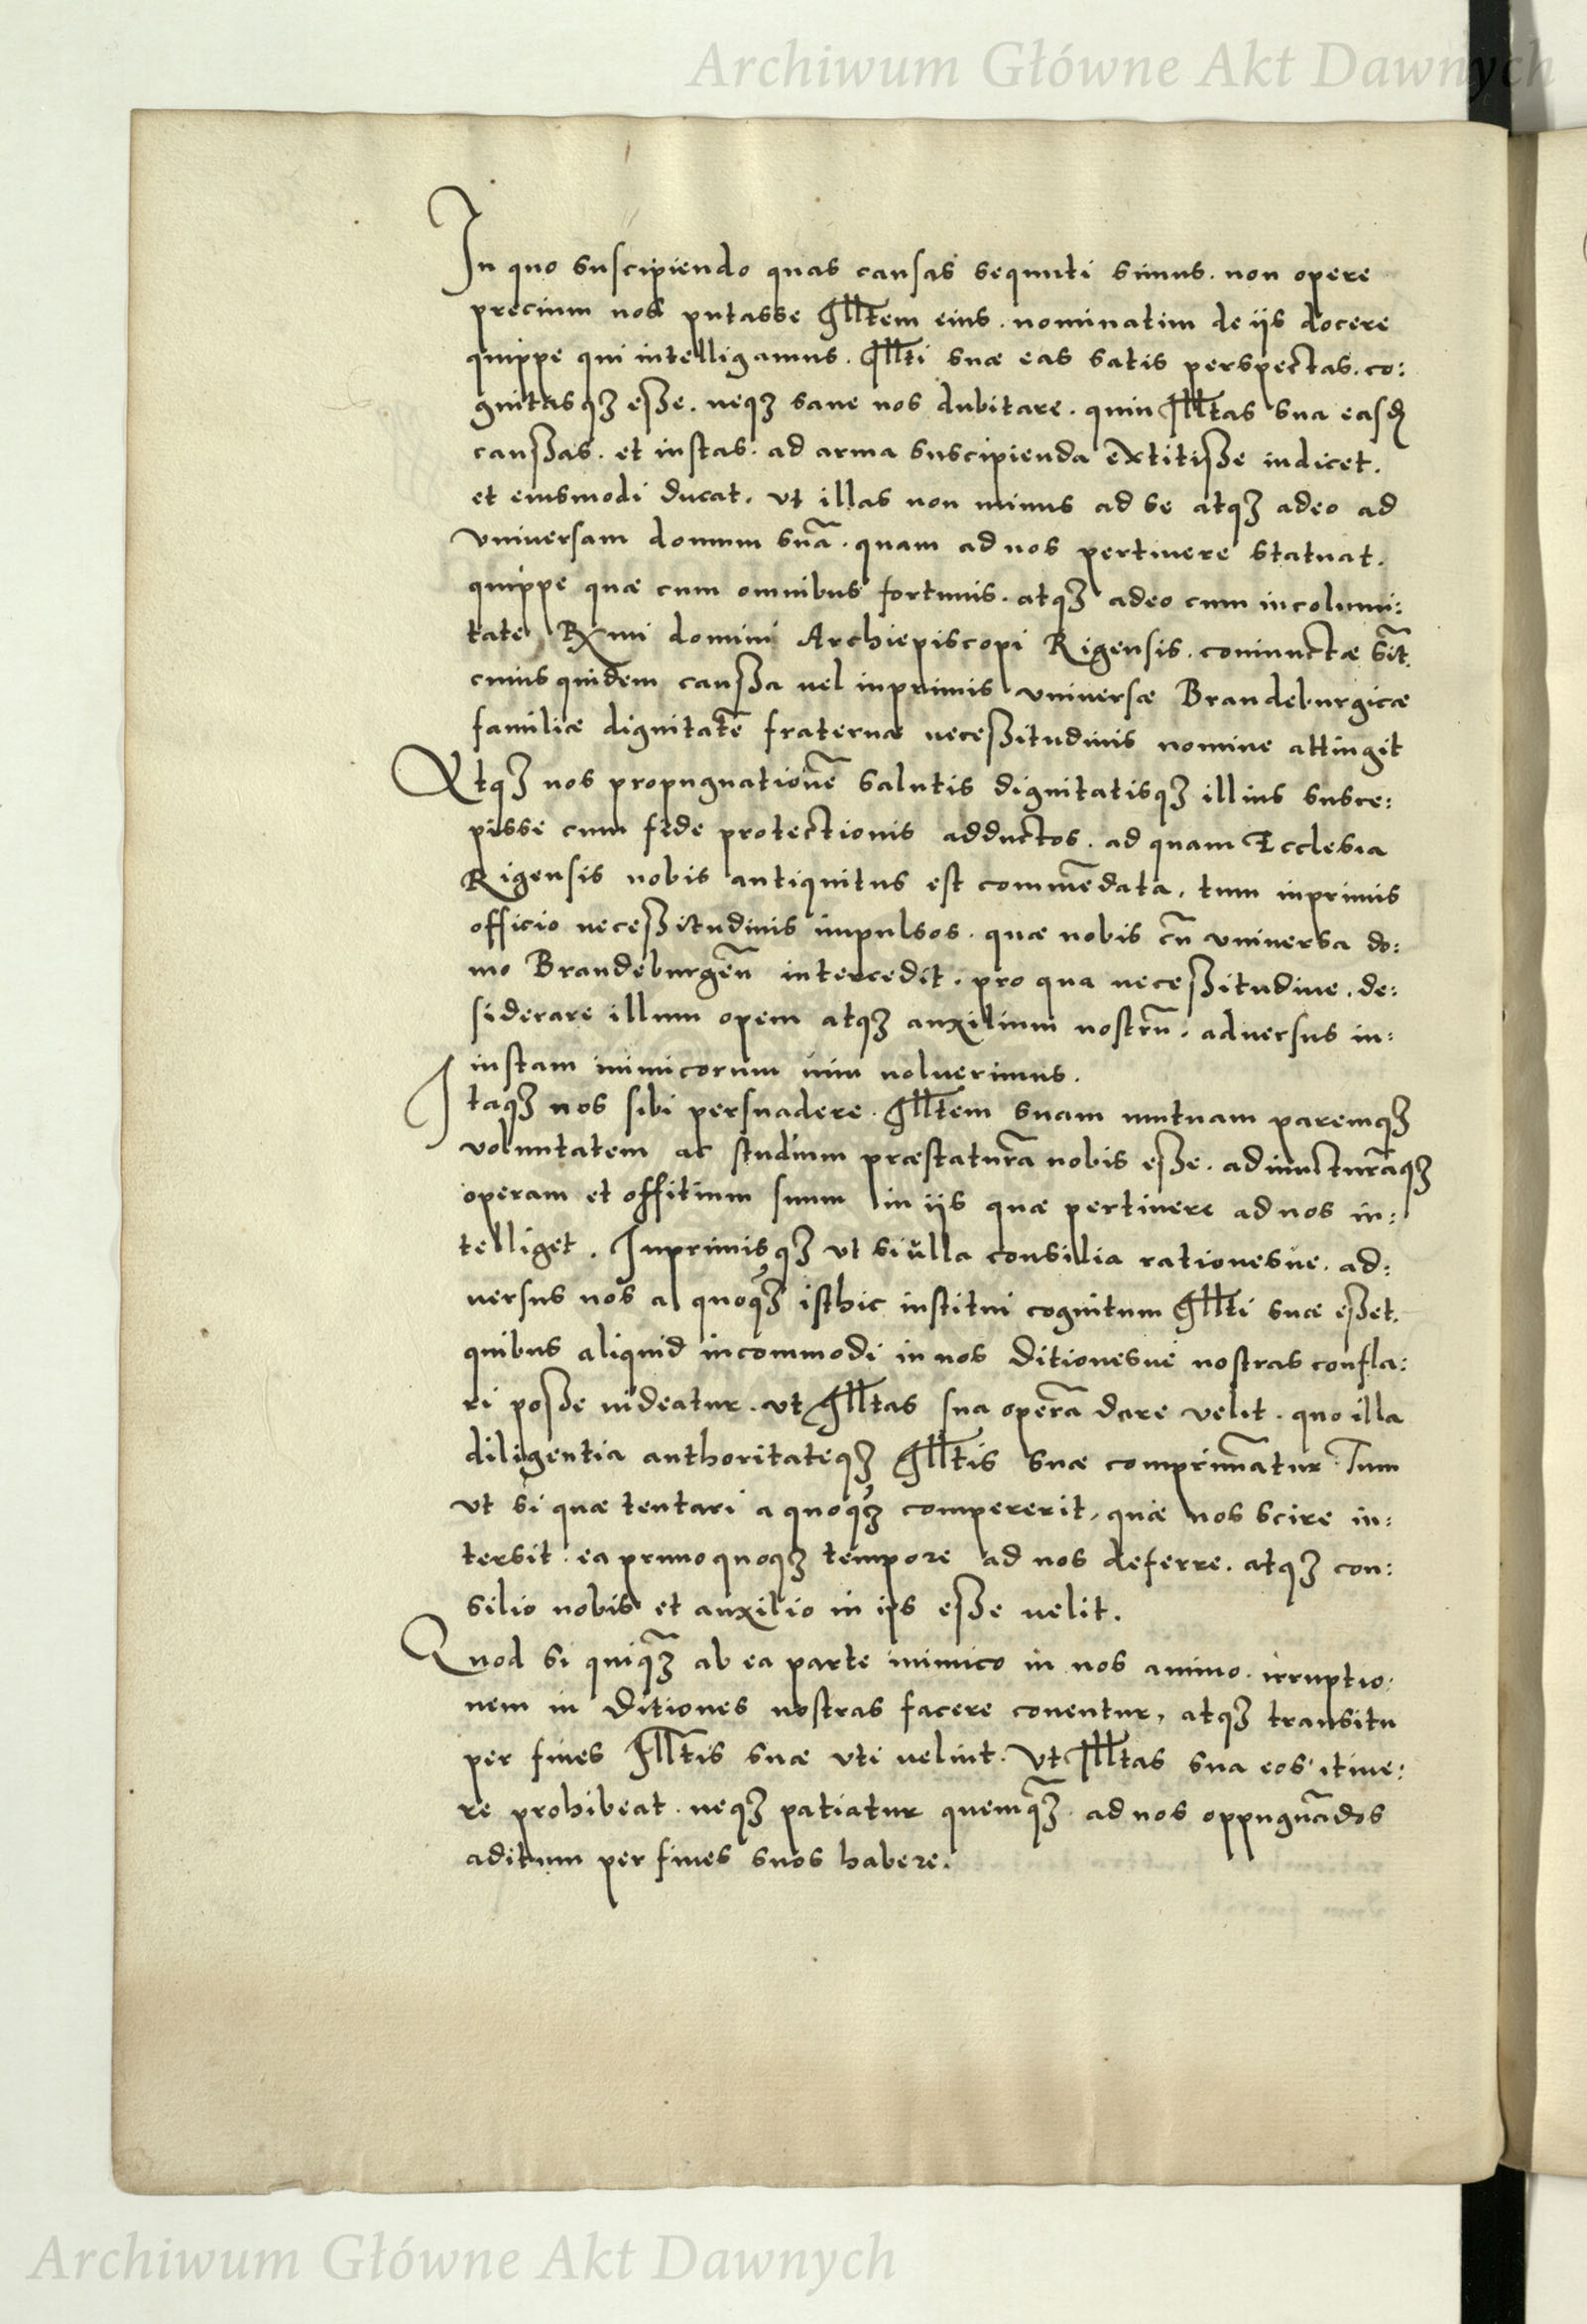 Archiwum Główne Akt Dawnych
In quo suscipiendo quas causas sequuti simus. non opere
precium nos putasse Illtem eius. nominatim de iis docere
quippe qui intelligamus. Illti suæ eas satis perspectas. co:
gnitasqȝ esse. neqȝ sane nos dubitare. quin Illtas sua easd
caussas. et iustas. ad arma suscipienda extitisse iudicet.
et eiusmodi ducat. ut illas non minus ad se atqȝ adeo ad
universam domum suā. quam ad nos pertinere statuat.
quippe quæ cum omnibus fortunis. atqȝ adeo cum incolumi:
tate Rxmi domini Archiepiscopi Rigensis. coniunctæ sēt.
cuius quidem caussa uel inprimis universæ Brandeburgicæ
familiæ dignitatē fraternæ necessitudinis nomine attingit
Atqȝ nos propugnationē salutis dignitatisqȝ illius susce:
pisse cum fide protectionis adductos. ad quam Ecclesia
Rigensis nobis antiquitus est commēdata. tum inprimis
officio necessitudinis impulsos. quæ nobis cū universa do:
mo Brandeburgēn intercedit. pro qua necessitudine. de:
siderare illum opem atqȝ auxilium nostrū. adversus in:
iustam inimicorum uim noluerimus.
Itaqȝ nos sibi persuadere. Illtem suam mutuam paremqȝ
voluntatem ac studium præstaturā nobis esse. adiuncturāqȝ
operam et offitium suum in iis quæ pertinere ad nos in:
telliget. Inprimisqȝ ut si ulla consilia rationesue. ad:
uersus nos a quoqȝ isthic institui cognitum Illti suæ esset.
quibus aliquid incommodi in nos ditionesue nostras confla:
ri posse uideatur. ut Illtas sua operā dare velit. quo illa
diligentia authoritateqȝ Illtis suæ comprimātur. Tum
ut si quæ tentari a quoqȝ compererit, quæ nos scire in:
tersit. ea primo quoqȝ tempore ad nos deferre. atqȝ con:
silio nobis et auxilio in ijs esse uelit.
Quod si quiqȝ ab ea parte inimico in nos animo. irruptio:
nem in ditiones nostras facere conentur, atqȝ transitu
per fines Illtis suæ uti uelint. Ut Illtas sua eos itine:
re prohibeat. neqȝ patiatur quemqȝ ad nos oppugnādos
aditum per fines suos habere.
Archiwum Główne Akt Dawnych